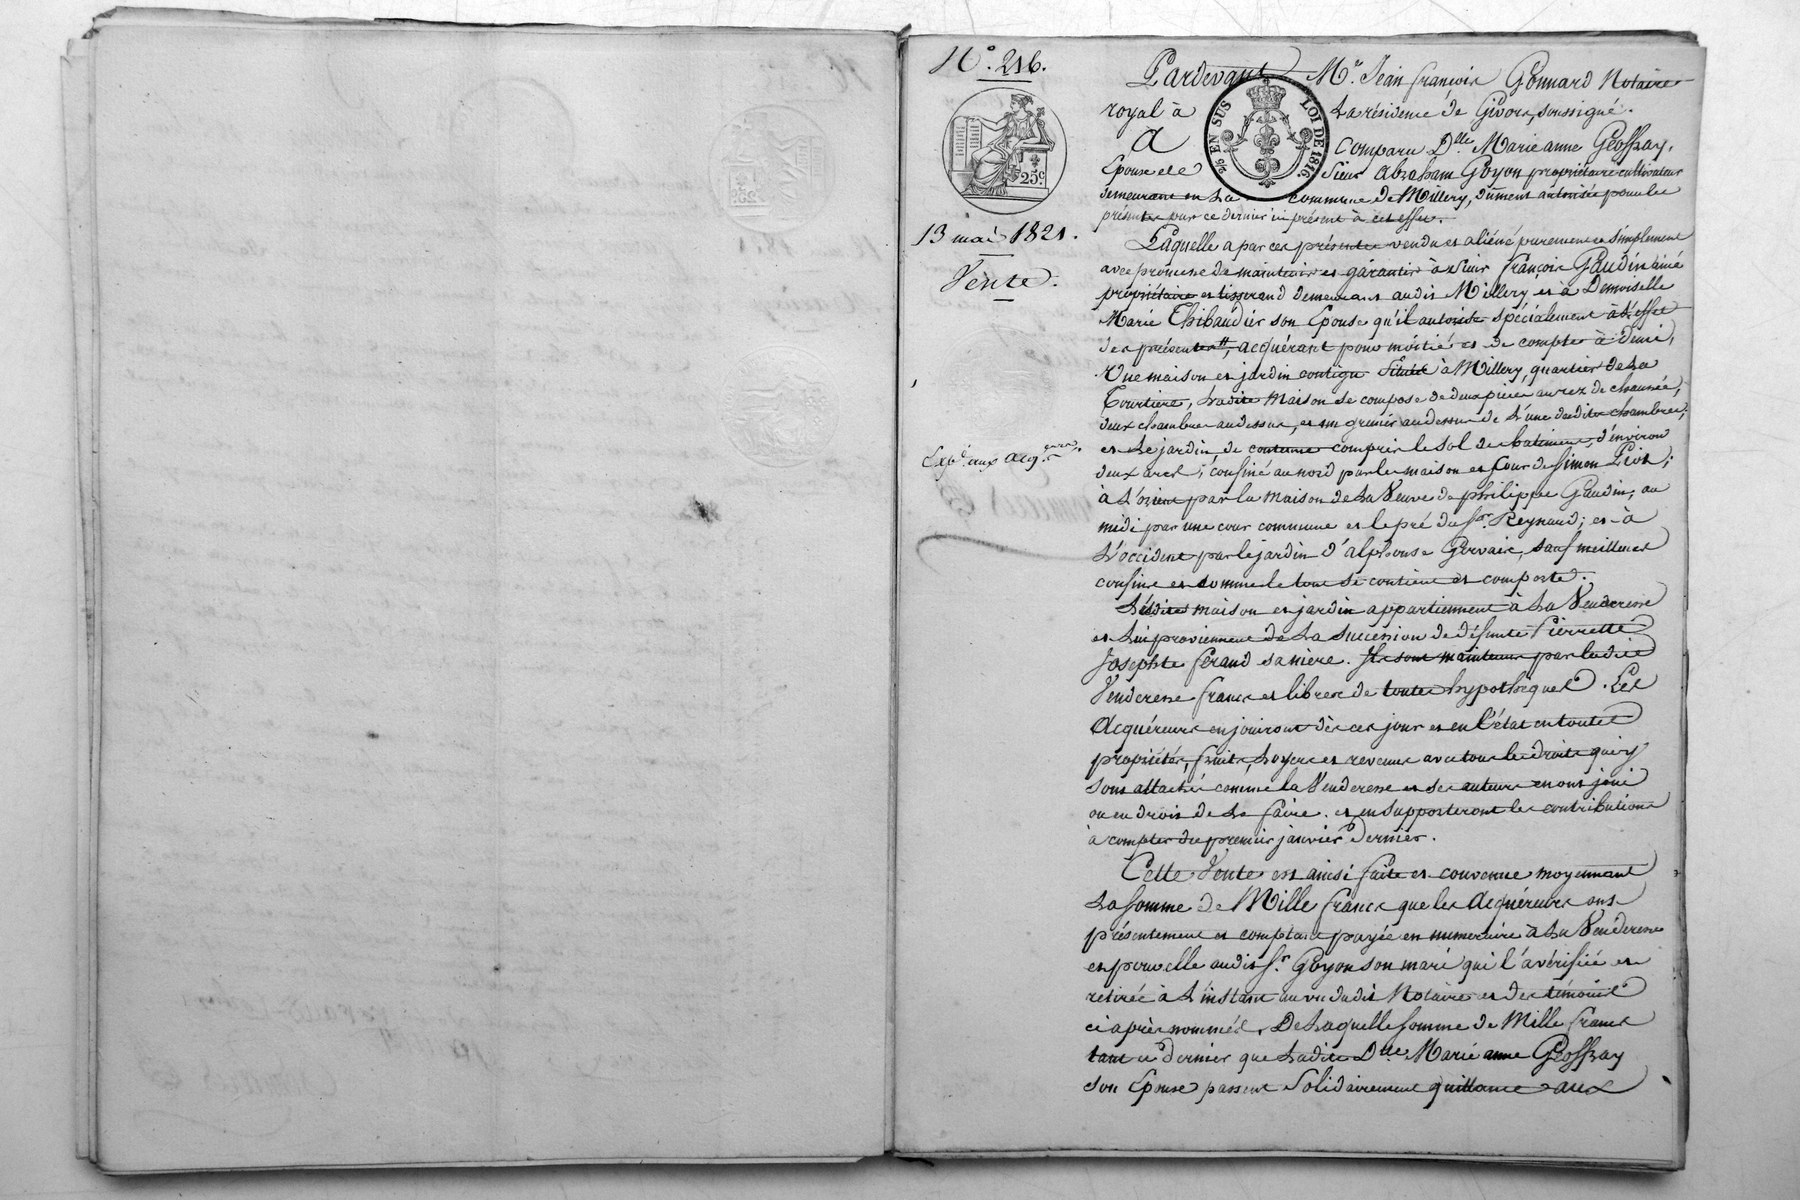 N.° 216.
25.c
13 mai 1821.
Vente.
Exp.on aux acq.
2/6 EN SUS LOI DE 1816.
Pardevant M.e Jean françois Gonnard Notaire
royal à La résidence de Givors, soussigné.
A Comparu D.lle Marie anne Geoffray,
Epouse de Sieur Abraham Goyon propriétaire cultivateur
demeurant en La commune de Millery, dûment autorisée pour les
présentes par ce dernier ici présent à cet effet.
Laquelle a par ces présentes vendu et aliéné purement et simplement
avec promesse de maintenir et garantir à Sieur françois Gaudin ainé
propriétaire et tisserand demeurant audit Millery et à Demoiselle
Marie Thibaudier son Epouse qu'il autorise spécialement à l'effet
des présentes, acquérant pour moitié et de compte à demi,
Une maison et jardin contigu Situés à Millery, quartier de La
Tourtière, Ladite Maison se compose de deux pièces au rez de chaussée,
deux chambres au dessus, et un grenier au dessus de L'une desdites chambres;
et Le jardin de contenue compris le sol des batiments, d'environ
deux ares; confiné au nord par les maison et Cour de Simon Piot;
à L'orient par la maison de La Veuve de philippe Gaudin; au
midi par une cour commune et le pré du S.r Reynaud; et à
L'occident par le jardin d'alphonse Gervais, sauf meilleurs
confins et comme le tout se contient et comporte.
Lesdites maison et jardin appartiennent à La Venderesse
et Lui proviennent de La succession de défunte Pierrette
Josephte feraud sa mère. Ils sont maintenus par ladite
Venderesse francs et libres de toutes hypothèques. Les
Acquéreurs en jouiront dès ces jour et en l'état en toutes
propriétés, fruits, Loyers et revenus avec tous les droits qui y
sont attachés comme la Venderesse et ses auteurs en ont joui
ou eu droit de Le faire. et en supporteront les contributions
à compter du premier janvier dernier.
Cette Vente est ainsi faite et convenue moyennant
La somme de Mille francs que les Acquéreurs ont
présentement et comptant payée en numeraire à La Venderesse
et pour elle audit S.r Goyon son mari qui l'a vérifiée et
retirée à L'instant au vu dudit Notaire et des témoins
ci après nommés. De Laquelle somme de Mille francs
tant ce dernier que Ladite D.lle Marie anne Geoffray
son Epouse passent Solidairement quittance aux